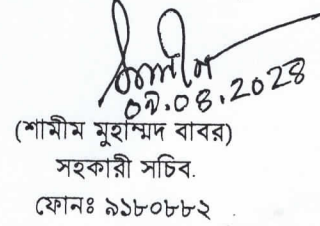 শামীম
০৯.০৪.২০২৪
(শামীম মুহাম্মদ বাবর)
সহকারী সচিব.
ফোনঃ ৯১৮০৮৮২